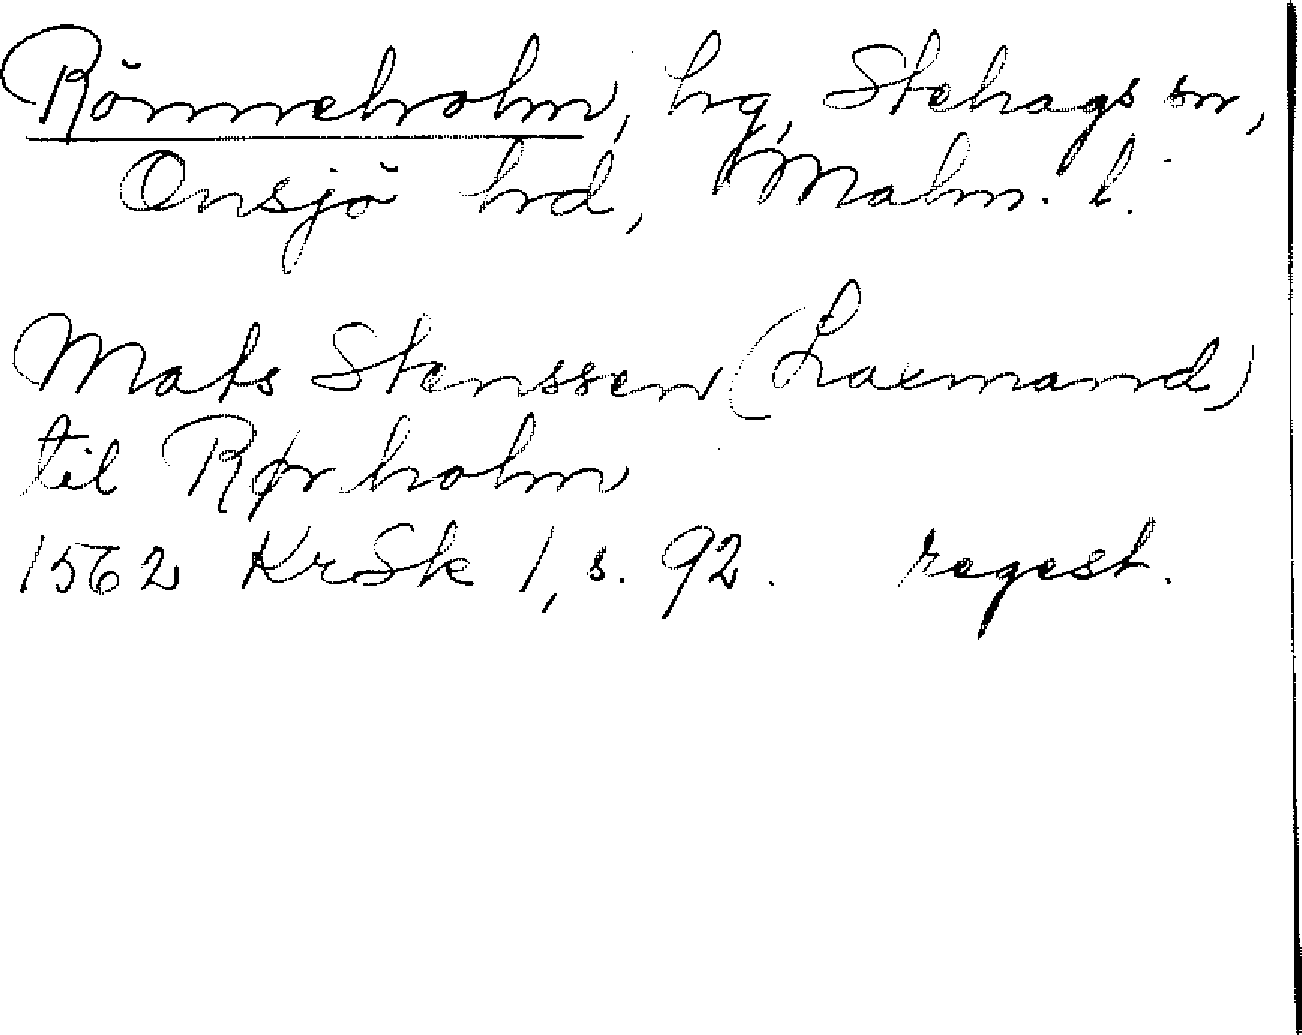 Rönneholm, hg, Stehags sn,
Onsjö hd, Malm. l.
Mats Stenssen (Laxmand)
til Rørholm
1562 KrSk 1, s. 92. regest.